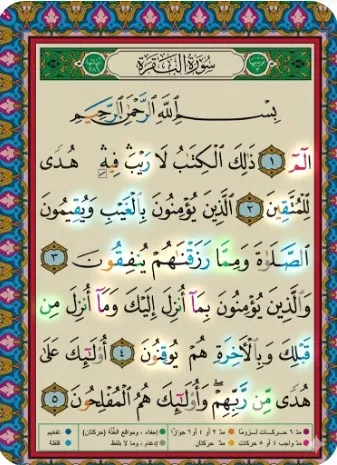 سُورَةُ البَقَرَةِ
بِسْمِ ٱللَّهِ ٱلرَّحْمَٰنِ ٱلرَّحِيمِ
الٓمٓ ١ ذَٰلِكَ ٱلْكِتَٰبُ لَا رَيْبَ ۛ فِيهِ ۛ هُدًى
لِّلْمُتَّقِينَ ٢ ٱلَّذِينَ يُؤْمِنُونَ بِٱلْغَيْبِ وَيُقِيمُونَ
ٱلصَّلَوٰةَ وَمِمَّا رَزَقْنَٰهُمْ يُنفِقُونَ ٣
وَٱلَّذِينَ يُؤْمِنُونَ بِمَآ أُنزِلَ إِلَيْكَ وَمَآ أُنزِلَ مِن
قَبْلِكَ وَبِٱلْءَاخِرَةِ هُمْ يُوقِنُونَ ٤ أُو۟لَٰٓئِكَ عَلَىٰ
هُدًى مِّن رَّبِّهِمْ ۖ وَأُو۟لَٰٓئِكَ هُمُ ٱلْمُفْلِحُونَ ٥
مدّ ٦ حركات لزومًا مدّ ٢ أو ٤ أو ٦ جوازًا إخفاء، ومواقع الغُنَّة (حركتان) تفخيم
مدّ واجب ٤ أو ٥ حركات مدّ حركتان إدغام، وما لا يلفظ قلقلة